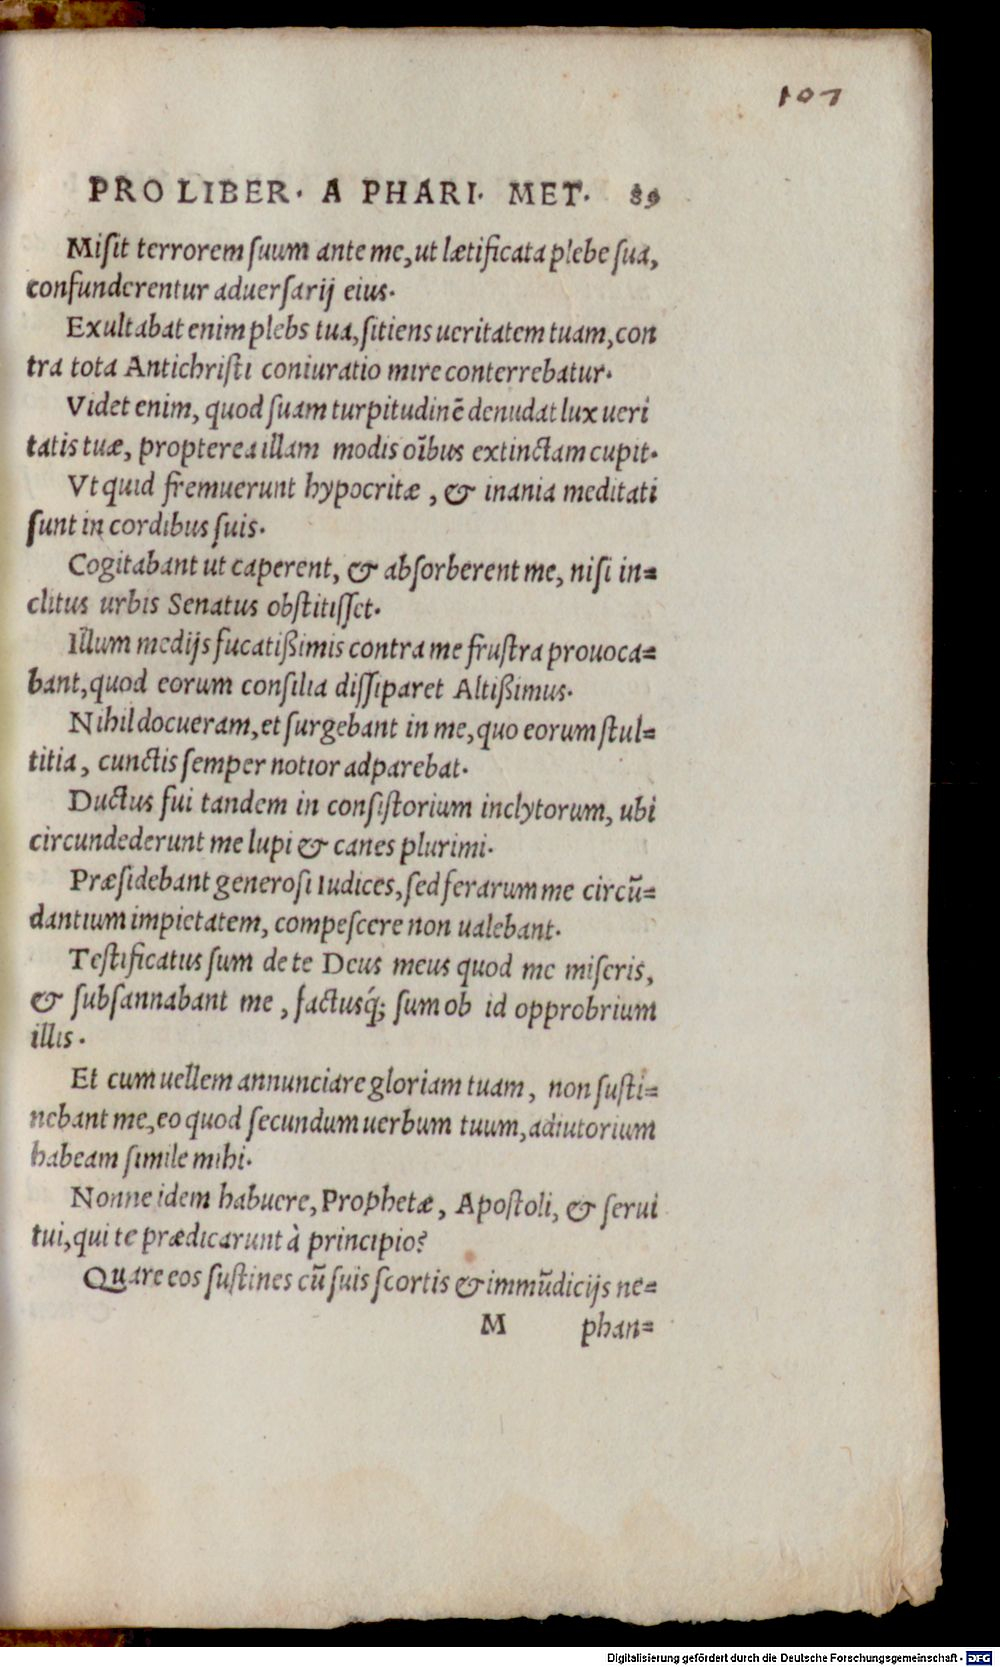 107
PRO LIBER· A PHARI· MET· 89
Misit terrorem suum ante me, ut lætificata plebe sua,
confunderentur aduersarij eius·
Exultabat enim plebs tua, sitiens ueritatem tuam, con
tra tota Antichristi coniuratio mire conterrebatur·
Videt enim, quod suam turpitudinē denudat lux ueri
tatis tuæ, propterea illam modis oībus extinctam cupit·
Vt quid fremuerunt hypocritæ, & inania meditati
sunt in cordibus suis·
Cogitabant ut caperent, & absorberent me, nisi in=
clitus urbis Senatus obstitisset·
Illum medijs fucatißimis contra me frustra prouoca=
bant, quod eorum consilia dissiparet Altißimus·
Nihil docueram, et surgebant in me, quo eorum stul=
titia, cunctis semper notior adparebat·
Ductus fui tandem in consistorium inclytorum, ubi
circundederunt me lupi & canes plurimi·
Præsidebant generosi Iudices, sed ferarum me circū=
dantium impietatem, compescere non ualebant·
Testificatus sum de te Deus meus quod me miseris,
& subsannabant me, factusq́; sum ob id opprobrium
illis·
Et cum uellem annunciare gloriam tuam, non susti=
nebant me, eo quod secundum uerbum tuum, adiutorium
habeam simile mihi·
Nonne idem habuere, Prophetæ, Apostoli, & serui
tui, qui te prædicarunt à principio?
Quare eos sustines cū suis scortis & immūdicijs ne=
M phan=
Digitalisierung gefördert durch die Deutsche Forschungsgemeinschaft - DFG